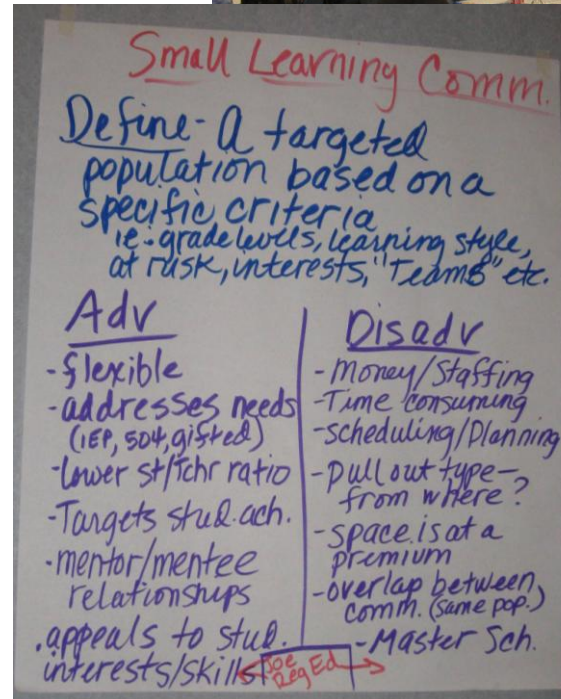 Small Learning Comm.
Define - A targeted
population based on a
specific criteria
ie. grade levels, learning style,
at risk, interests, "Teams" etc.
Adv
- flexible
- addresses needs
(IEP, 504, gifted)
- Lower st/Tchr ratio
- Targets stud. ach.
- mentor/mentee
relationships
. appeals to stud.
interests/skills
Disadv
- Money/Staffing
- Time consuming
- scheduling/Planning
- Pull out type -
from where?
- space is at a
premium
- overlap between
comm. (same pop.)
- Master Sch.
Joe
Reg Ed